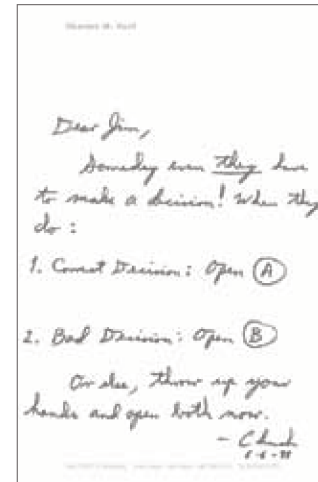 Dear Jim,
Someday even they have
to make a decision! When they
do :
1. Correct Decision: Open (A)
2. Bad Decision: Open (B)
Or else, throw up your
hands and open both now.
- Chuck